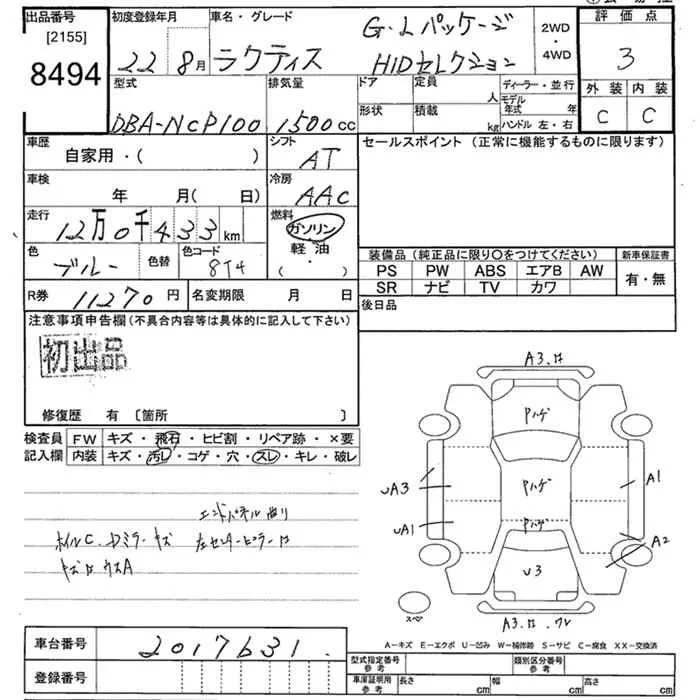 出品番号
[2155]
8494
初度登録年月
22 8月
車名・グレード
ラクティス
G・Lパッケージ
HIDセレクション
2WD
・
4WD
評価点
3
外装 内装
C C
型式
DBA-NCP100
排気量
1500cc
ドア
形状
定員 人
積載 kg
ディーラー・並行
モデル年式 年
ハンドル 左・右
車歴
自家用・( )
シフト
AT
セールスポイント (正常に機能するものに限ります)
車検
年 月( 日)
冷房
AAC
走行
12万0千433km
燃料
ガソリン
軽油
( ・ )
色
ブルー
色替
色コード
8T4
装備品 (純正品に限り○をつけてください)
新車保証書
PS PW ABS エアB AW
SR ナビ TV カワ
有・無
R券 11270円
名変期限 月 日
後日品
注意事項申告欄(不具合内容等は具体的に記入して下さい)
初出品
修復歴 有 〔箇所 〕
検査員記入欄
FW キズ・飛石・ヒビ割・リペア跡・×要
内装 キズ・汚レ・コゲ・穴・スレ・キレ・破レ
エンドパネル曲り
ホイルC
キズ
A3
Pハゲ
Pハゲ
Pハゲ
UA3
UA1
A1
A2
U3
スペア
A3
車台番号
2017631
登録番号
A－キズ E－エクボ U－凹み W－補修跡 S－サビ C－腐食 XX－交換済
型式指定番号 参考
類別区分番号 参考
車庫証明用 参考
長さ cm
幅 cm
高さ cm